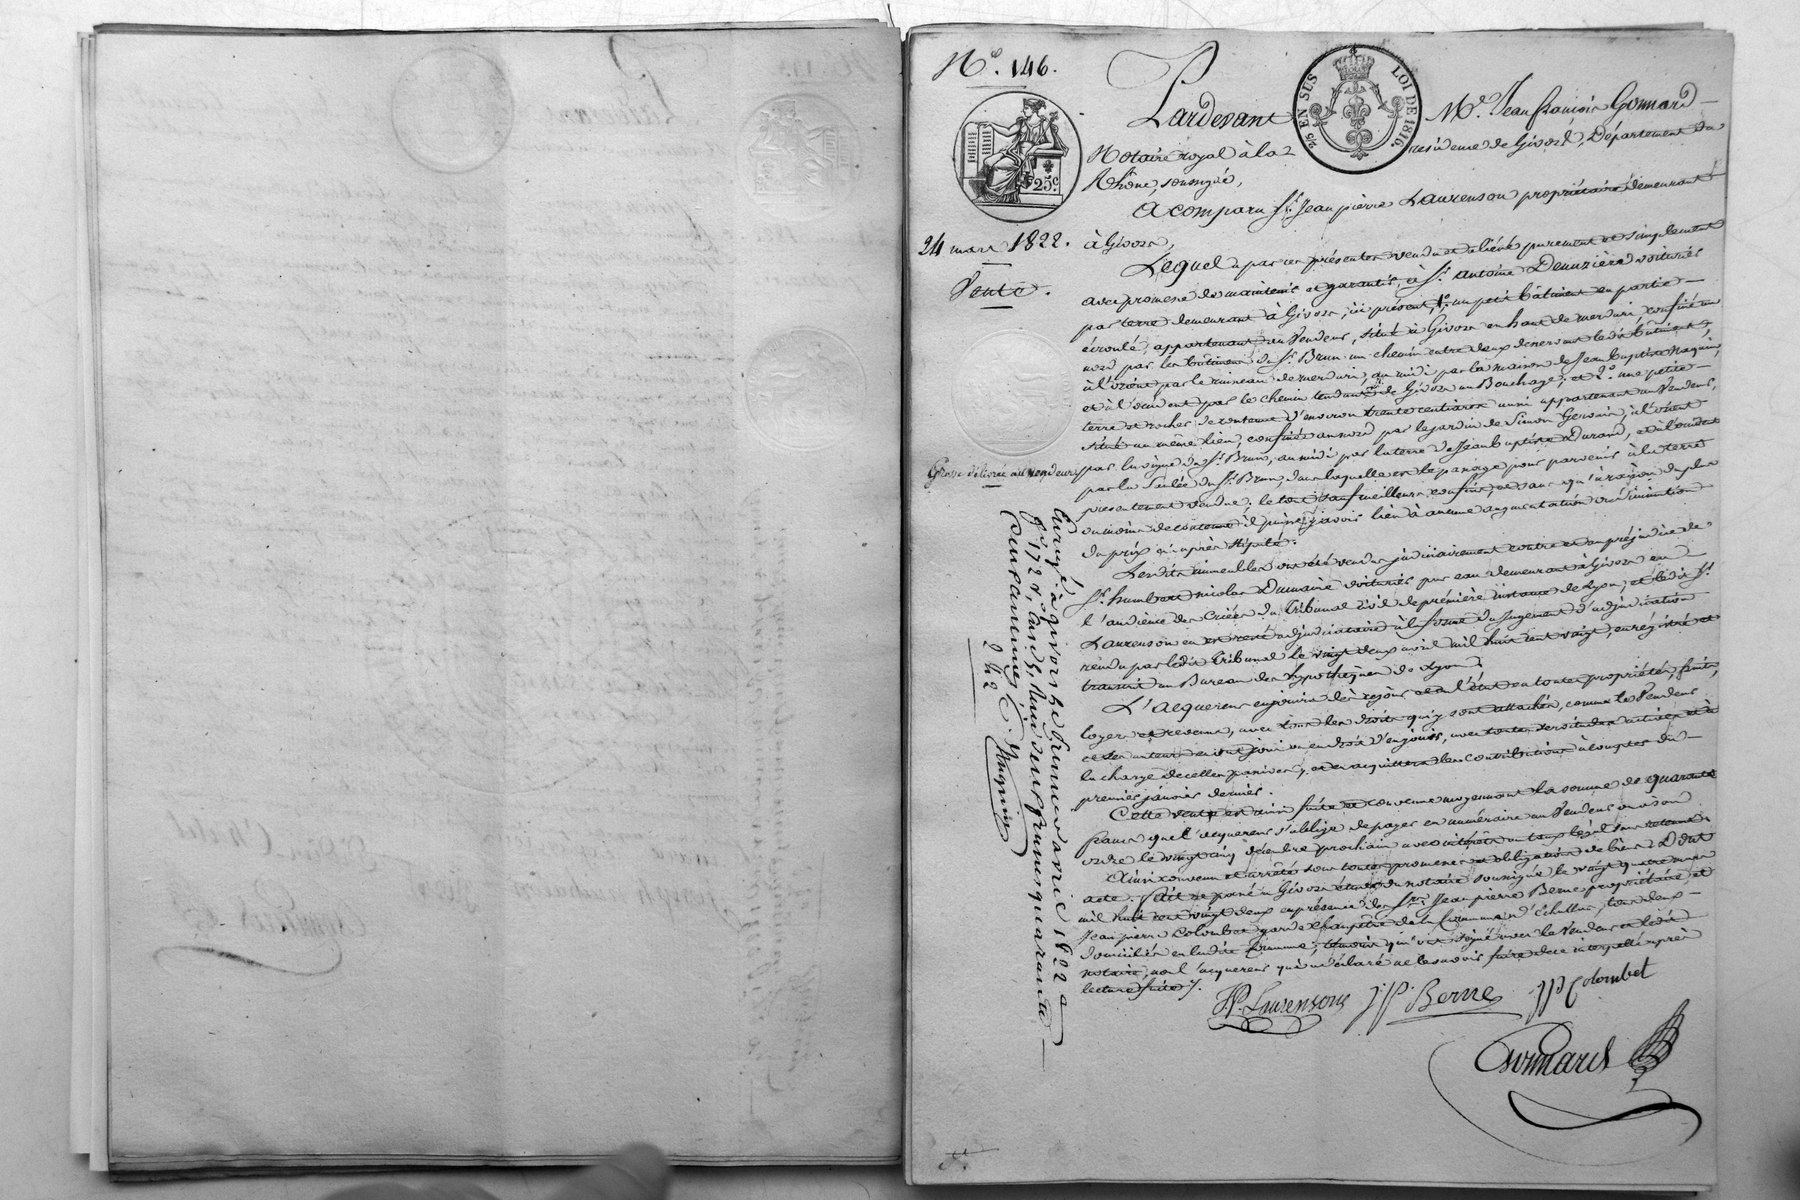 N.o 146.
Pardevant M.e Jean François Gonnard
Notaire royal à la résidence de Givors, Département du
Rhône, soussigné,
2/5 EN SUS LOI DE 1816.
25c.
A comparu S.r Jean pierre Laurenson propriétaire demeurant
24 mars 1822.
à Givors,
Vente.
Lequel a par ces présentes vendu et aliéné purement et simplement
avec promesse de maintenir et garantir, à S.r Antoine Deuzière voiturier
par terre demeurant à Givors, ici présent, 1.o un petit bâtiment en partie
écroulé, appartenant au Vendeur, situé à Givors en haut de merdari, confiné au
nord par les bâtimens du S.r Brun un chemin entre deux desservant ledit bâtiment,
à l'orient par le ruisseau de merdari, au midi par la maison de Jean Baptiste
et à l'occident par le chemin tendant de Givors au Bouchage; et 2.o une petite
terre et rocher de contenue d'environ trente centiares aussi appartenant au Vendeur,
situé au même lieu, confinée au nord par le jardin de Simon Gervais, à l'orient
Grosse délivrée au vendeur
par la vigne du S.r Brun, au midi par la terre de Jean Baptiste Durand, et à l'occident
par la du S.r Brun, dans laquelle est le passage pour parvenir à la terre
présentement vendue; le tout sauf meilleurs confins, et sans qu'à raison du plus
ou moins de contenue il puisse y avoir lieu à aucune augmentation ou diminution
du prix ci après stipulé.
Lesdits immeubles ont été vendus judiciairement contre et au préjudice de
S.r humbert nicolas Dumaine voiturier par eau demeurant à Givors en
l'audience des Criées du Tribunal Civil de première instance de Lyon; et ledit S.r
Laurenson en est resté adjudicataire à la forme du Jugement d'adjudication
rendu par ledit Tribunal le vingt deux avril mil huit cent vingt, enregistré et
transcrit au Bureau des hypothèques de Lyon.
L'acquereur en jouira dès ce jour et en l'état en toute propriété, fruits,
loyers et revenus, avec tous les droits qui y sont attachés, comme le Vendeur
et ses auteurs en ont joui ou en droit d'en jouir, avec toutes servitudes actives et à
la charge de celles passives, et en acquittera les contributions à compter du
premier janvier dernier.
Cette vente est ainsi faite et convenue moyennant la somme de quarante
francs que l'acquereur s'oblige de payer en numéraire au Vendeur ou à son
ordre le vingt cinq décembre prochain avec intérêt au taux légal sans retenue.
Ainsi convenu et arrêté sous toutes promesses et obligations de biens. Dont
acte. Fait et passé à Givors étude du notaire soussigné le vingt quatre mars
mil huit cent vingt deux en présence des S.rs Jean pierre Berne propriétaire et
Jean pierre Colombet garde champêtre de la Commune d'Echallas, tous deux
domiciliés en ladite Commune, témoins qui ont signé avec le Vendeur et ledit
notaire, non l'acquereur qui a déclaré ne le savoir faire de ce interpellé après
lecture faite.
J.P. Laurenson J.P. Berne JP Colombet
Gonnard
Enregé à givors le trente un avril 1822
f.o 172 v.o, case 5, Reçu deux francs quarante
deux centimes,
2 42 c.